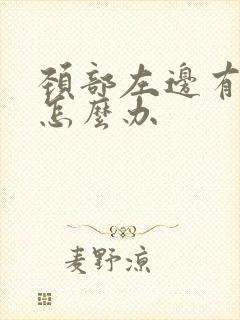 頚部左邊有
怎麼办
麦野凉